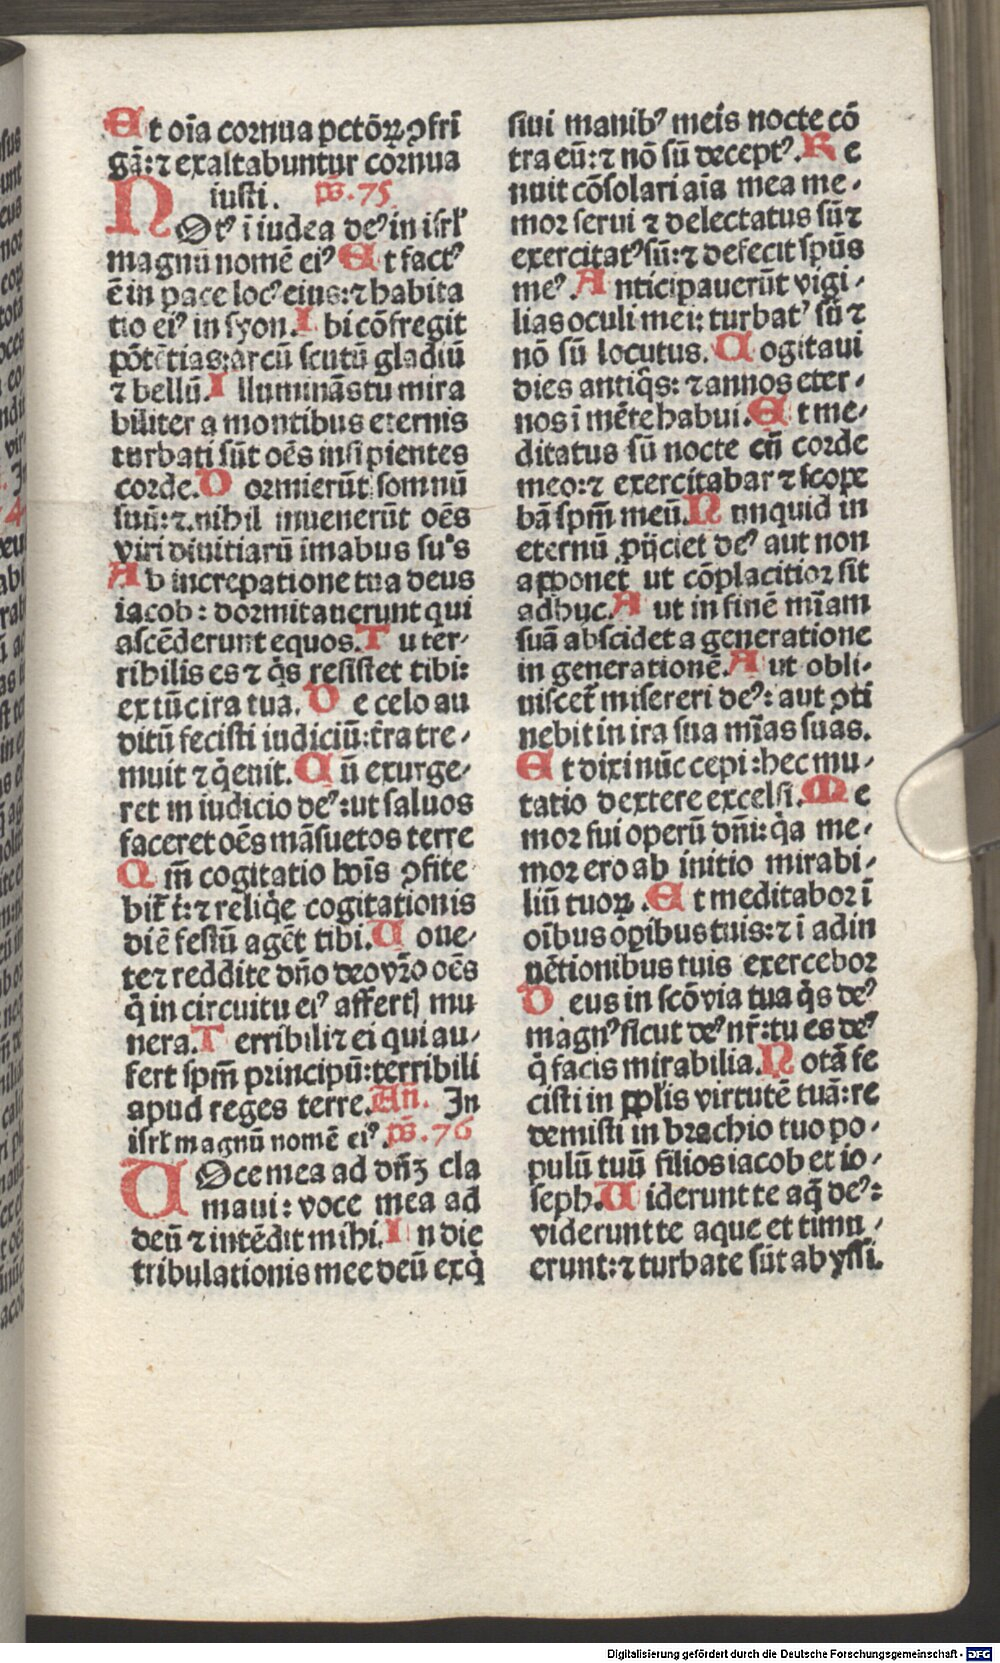 Et oīa cornua pctōꝝ ꝯfri
gā: ⁊ exaltabuntur cornua
iusti. ps̄. 75.
NOtꝰ ī iudea deꝰ in isrl̓
magnū nomē eiꝰ Et factꝰ
ē in pace locꝰ eius: ⁊ habita
tio eiꝰ in syon. Ibi cōfregit
pōtētias: arcū scutū gladiū
⁊ bellū. Illuminās tu mira
biliter a montibus eternis
turbati sūt oēs insipientes
corde. Dormierūt somnū
suū: ⁊ nihil inuenerūt oēs
viri diuitiarū imabus suꝰs
Ab increpatione tua deus
iacob: dormitauerunt qui
ascēderunt equos. Tu ter-
ribilis es ⁊ q̇s resistet tibi:
ex tūc ira tua. De celo au
ditū fecisti iudiciū: t̄ra tre-
muit ⁊ q̇euit. Cū exurge-
ret in iudicio deꝰ: ut saluos
faceret oēs māsuetos terre
Qm̄ cogitatio hoīs ꝯfite
bit̄ t̄: ⁊ reliq̇e cogitationis
diē festū agēt tibi. Uoue-
te ⁊ reddite dn̄o deo vr̄o oēs
q̇ in circuitu eiꝰ affertꝭ mu
nera. Terribili ⁊ ei qui au-
fert spm̄ principū: terribili
apud reges terre. An̄. In
isrl̓ magnū nomē eiꝰ. ps̄. 76
UOce mea ad dn̄ꝫ cla
maui: voce mea ad
deū ⁊ intēdit mihi. In die
tribulationis mee deū exq̇
siui manibꝰ meis nocte cō
tra eū: ⁊ nō sū deceptꝰ. Re
nuit cōsolari aīa mea me-
mor serui ⁊ delectatus sū ⁊
exercitatꝰ sū: ⁊ defecit spūs
meꝰ. Anticipauerūt vigi-
lias oculi mei: turbatꝰ sū ⁊
nō sū locutus. Cogitaui
dies antiq̇s: ⁊ annos eter-
nos ī mēte habui. Et me-
ditatus sū nocte cū corde
meo: ⁊ exercitabar ⁊ scope
bā spm̄ meū. Nunquid in
eternū ꝓijciet deꝰ aut non
apponet ut cōplacitior sit
adhuc. Aut in finē mīam
suā abscidet a generatione
in generationē. Aut obli-
uiscet̄ misereri deꝰ: aut ꝯti
nebit in ira sua mīas suas.
Et dixi nūc cepi: hec mu-
tatio dextere excelsi. Me
mor fui operū dn̄i: q̇a me-
mor ero ab initio mirabi-
liū tuoꝝ. Et meditabor ī
oībus oꝑibus tuis: ⁊ ī adin
uētionibus tuis exercebor
Deus in scō via tua q̇s deꝰ
magnꝰ sicut deꝰ nr̄: tu es deꝰ
q̇ facis mirabilia. Notā fe
cisti in ppl̓is virtutē tuā: re
demisti in brachio tuo po-
pulū tuū filios iacob et io-
seph. Uiderunt te aq̄ deꝰ:
viderunt te aque et timu-
erunt: ⁊ turbate sūt abyssi.
Digitalisierung gefördert durch die Deutsche Forschungsgemeinschaft - DFG